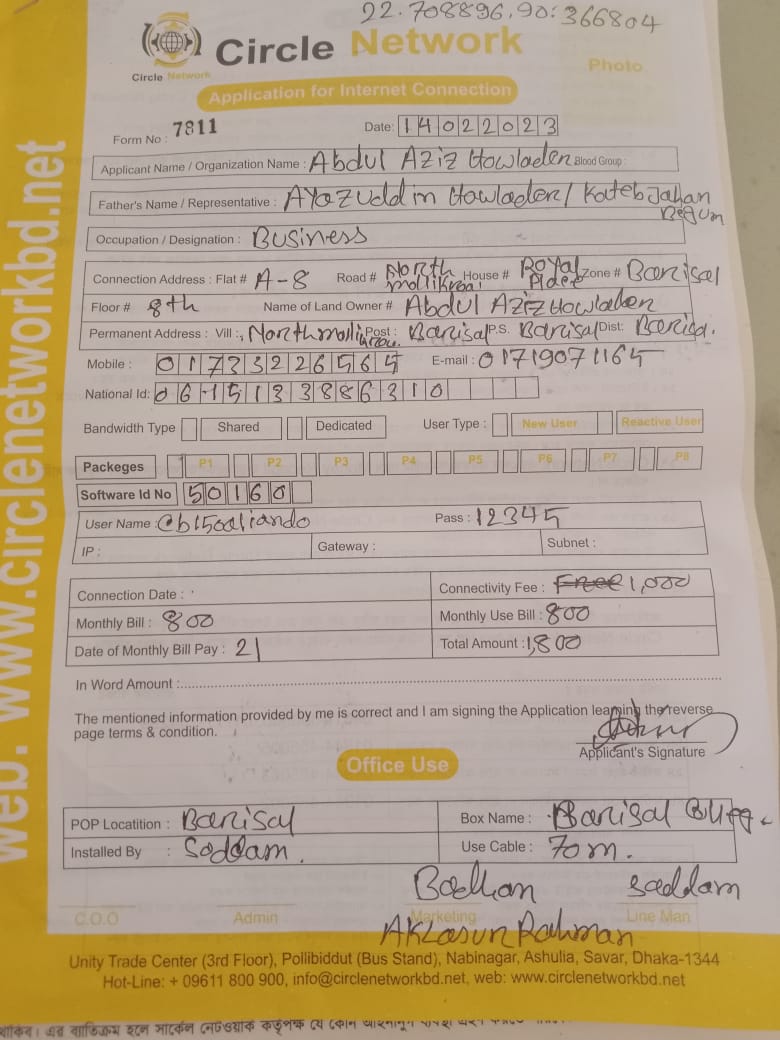 22.708896, 90.366804
Circle Network
Circle Network
Photo
Application for Internet Connection
Form No : 7811
Date: 14022023
Applicant Name / Organization Name : Abdul Aziz Howlader Blood Group :
Father's Name / Representative : Ayazuddin Howlader / Kateb Jahan Begum
Occupation / Designation : Business
Connection Address : Flat # A-8 Road # North House # Royal Zone # Barisal
Floor # 8th Name of Land Owner # Abdul Aziz Howlader
Permanent Address : Vill : Post : Barisal P.S. Barisal Dist: Barisal.
Mobile : 01733226565 E-mail : 01719071165
National Id:
Bandwidth Type Shared Dedicated User Type : New User Reactive User
Packeges P1 P2 P3 P4 P5 P6 P7 P8
Software Id No 50160
User Name : Pass : 12345
IP : Gateway : Subnet :
Connection Date : Connectivity Fee : Free 1,000
Monthly Bill : 800 Monthly Use Bill : 800
Date of Monthly Bill Pay : 21 Total Amount : 1,800
In Word Amount :
The mentioned information provided by me is correct and I am signing the Application learning the reverse
page terms & condition.
Applicant's Signature
Office Use
POP Locatition : Barisal Box Name : Barisal
Installed By : Saddam. Use Cable : 70m.
Badhan Saddam
C.O.O Admin Marketing Line Man
Rahman
Unity Trade Center (3rd Floor), Pollibiddut (Bus Stand), Nabinagar, Ashulia, Savar, Dhaka-1344
Hot-Line: + 09611 800 900, info@circlenetworkbd.net, web: www.circlenetworkbd.net
web: www.circlenetworkbd.net